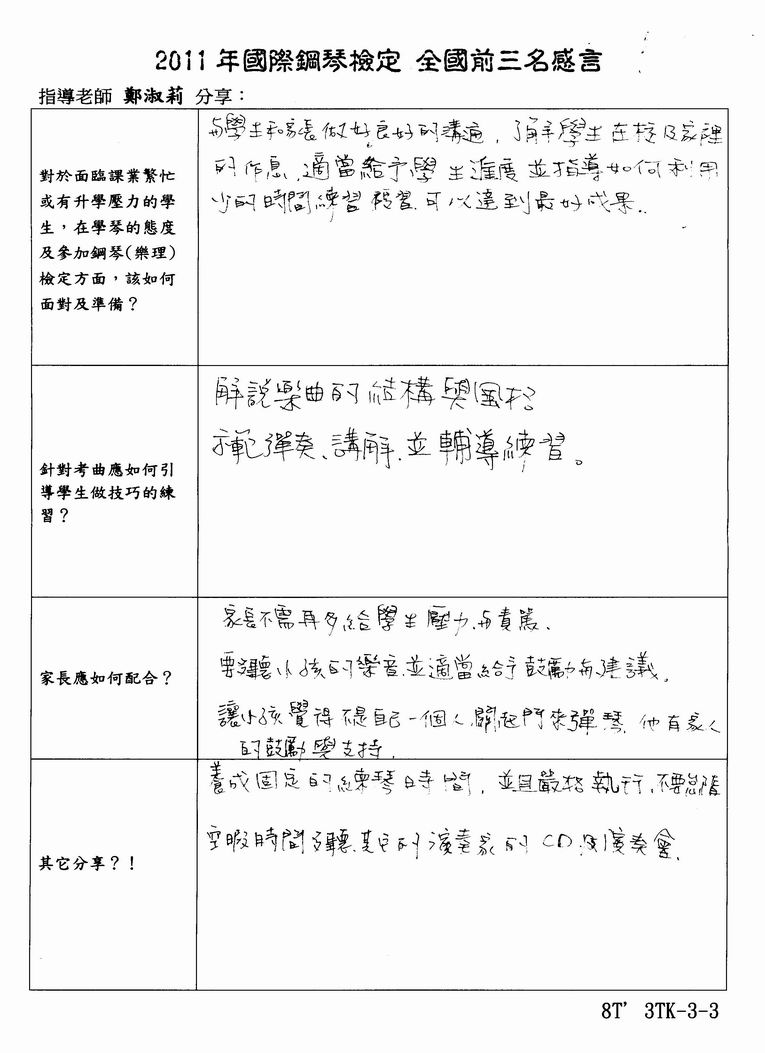 2011 年國際鋼琴檢定 全國前三名感言
指導老師 鄭淑莉 分享：
對於面臨課業繁忙
或有升學壓力的學
生，在學琴的態度
及參加鋼琴(樂理)
檢定方面，該如何
面對及準備？
与學生和家長做好良好的溝通，了解學生在校及家裡
的作息，適當給予學生進度並指導如何利用
少的時間練習 複習 可以達到最好成果.
針對考曲應如何引
導學生做技巧的練
習？
解說樂曲的結構與風格
示範彈奏、講解、並輔導練習。
家長應如何配合？
家長不需再多給學生壓力与責罵.
要聽小孩的樂音並適當給予鼓勵与建議.
讓小孩覺得不是自己一個人關起門來彈琴，他有家人
的鼓勵與支持.
其它分享？！
養成固定的練琴時間，並且嚴格執行，不要
空暇時間多聽其它的演奏家的CD及演奏會.
8T' 3TK-3-3